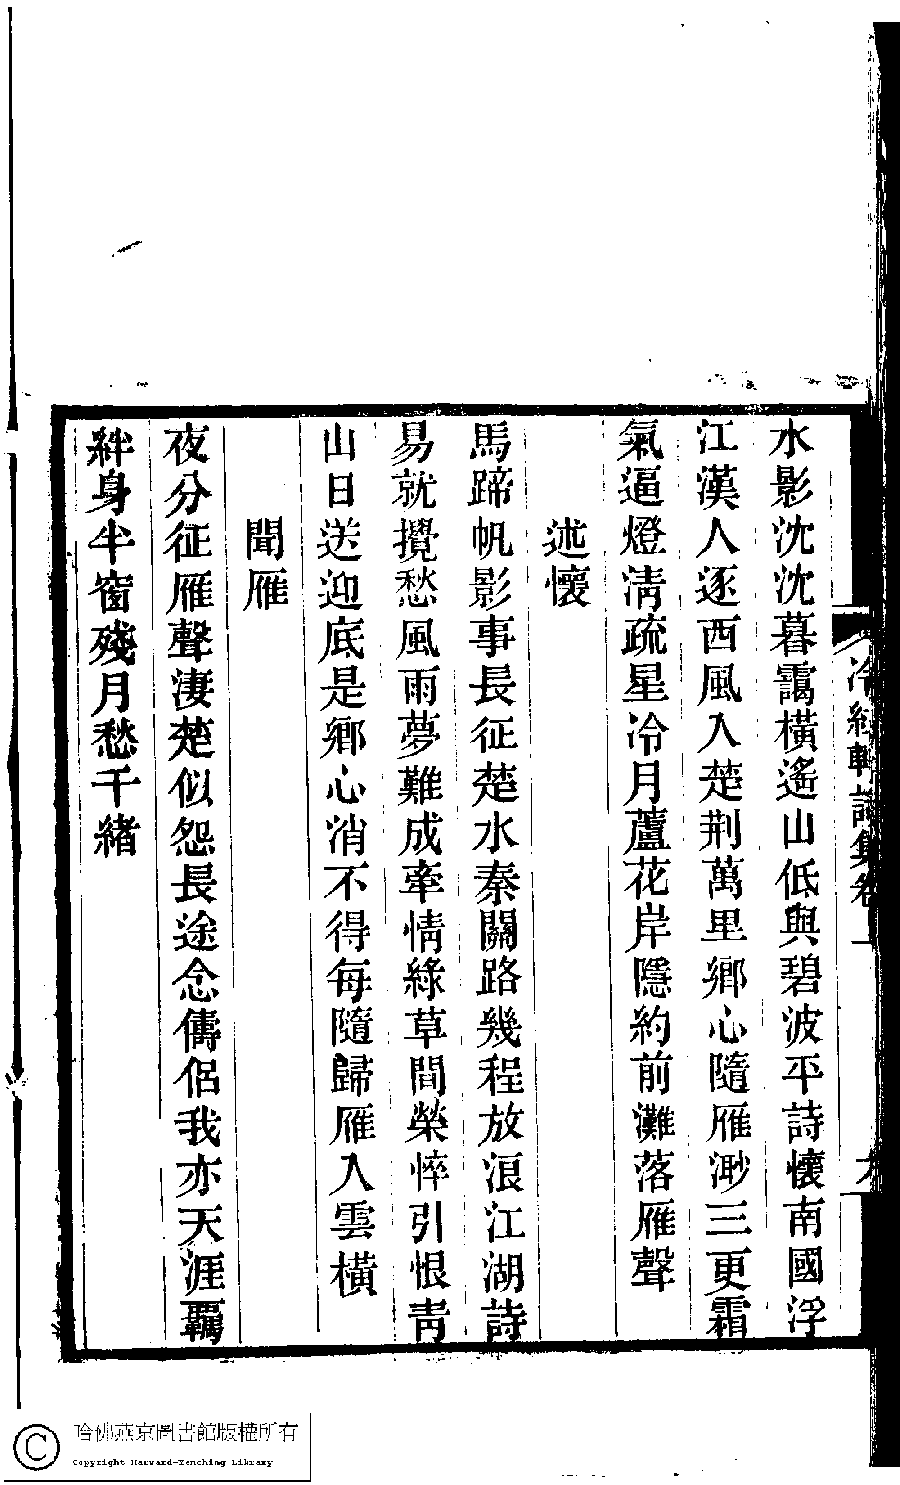 水影沈沈暮靄橫遙山低與碧波平詩懷南國浮
江漢人逐西風入楚荆萬里鄉心隨雁渺三更霜
氣逼燈淸疏星冷月蘆花岸隱約前灘落雁聲
述懷
馬蹄帆影事長征楚水秦關路幾程放浪江湖詩
易就攪愁風雨夢難成牽情綠草間榮悴引恨靑
山日送迎底是鄉心消不得每隨歸雁入雲橫
聞雁
夜分征雁聲淒楚似怨長途念儔侶我亦天涯羈
絆身半窗殘月愁千緒
哈佛燕京圖書館版權所有
Copyright Harvard-Yenching Library